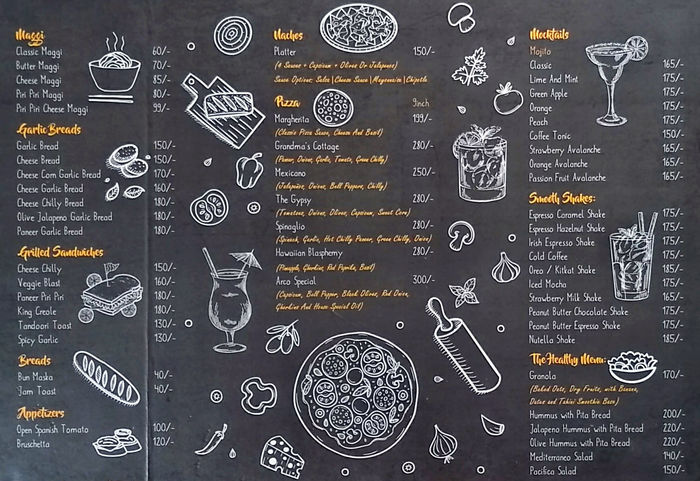 Maggi
Classic Maggi 60/-
Butter Maggi 70/-
Cheese Maggi 85/-
Piri Piri Maggi 80/-
Piri Piri Cheese Maggi 99/-
Garlic Breads
Garlic Bread 150/-
Cheese Bread 150/-
Cheese Corn Garlic Bread 170/-
Cheese Garlic Bread 160/-
Cheese Chilly Bread 180/-
Olive Jalapeno Garlic Bread 180/-
Paneer Garlic Bread 180/-
Grilled Sandwiches
Cheese Chilly 150/-
Veggie Blast 160/-
Paneer Piri Piri 180/-
King Creole 180/-
Tandoori Toast 130/-
Spicy Garlic 130/-
Breads
Bun Maska 40/-
Jam Toast 40/-
Appetizers
Open Spanish Tomato 100/-
Bruschetta 120/-
Nachos
Platter 150/-
(4 Sauces + Capsicum + Olives Or Jalapenos)
Sauce Options: Salsa | Cheese Sauce | Mayonnaise | Chipotle
Pizza 9inch
Margherita 199/-
(Classic Pizza Sauce, Cheese And Basil)
Grandma's Cottage 280/-
(Paneer, Onion, Garlic, Tomato, Green Chilly)
Mexicano 250/-
(Jalapeños, Onions, Bell Peppers, Chilly)
The Gypsy 280/-
(Tomatoes, Onions, Olives, Capsicum, Sweet Corn)
Spinaglio 280/-
(Spinach, Garlic, Hot Chilly Paneer, Green Chilly, Onion)
Hawaiian Blasphemy 280/-
(Pineapple, Gherkins, Red Paprika, Basil)
Arco Special 300/-
(Capsicum, Bell Pepper, Black Olives, Red Onion,
Gherkins And House Special Oil)
Mocktails
Mojito
Classic 165/-
Lime And Mint 175/-
Green Apple 175/-
Orange 175/-
Peach 175/-
Coffee Tonic 150/-
Strawberry Avalanche 165/-
Orange Avalanche 165/-
Passion Fruit Avalanche 165/-
Smooth Shakes:
Espresso Caramel Shake 175/-
Espresso Hazelnut Shake 175/-
Irish Espresso Shake 175/-
Cold Coffee 175/-
Oreo / Kitkat Shake 185/-
Iced Mocha 175/-
Strawberry Milk Shake 165/-
Peanut Butter Chocolate Shake 175/-
Peanut Butter Espresso Shake 175/-
Nutella Shake 185/-
The Healthy Menu:
Granola 170/-
(Baked Oats, Dry Fruits, with Banana,
Dates and Tahini Smoothie Base)
Hummus with Pita Bread 200/-
Jalapeno Hummus with Pita Bread 220/-
Olive Hummus with Pita Bread 220/-
Mediterraneo Salad 140/-
Pacifica Salad 150/-